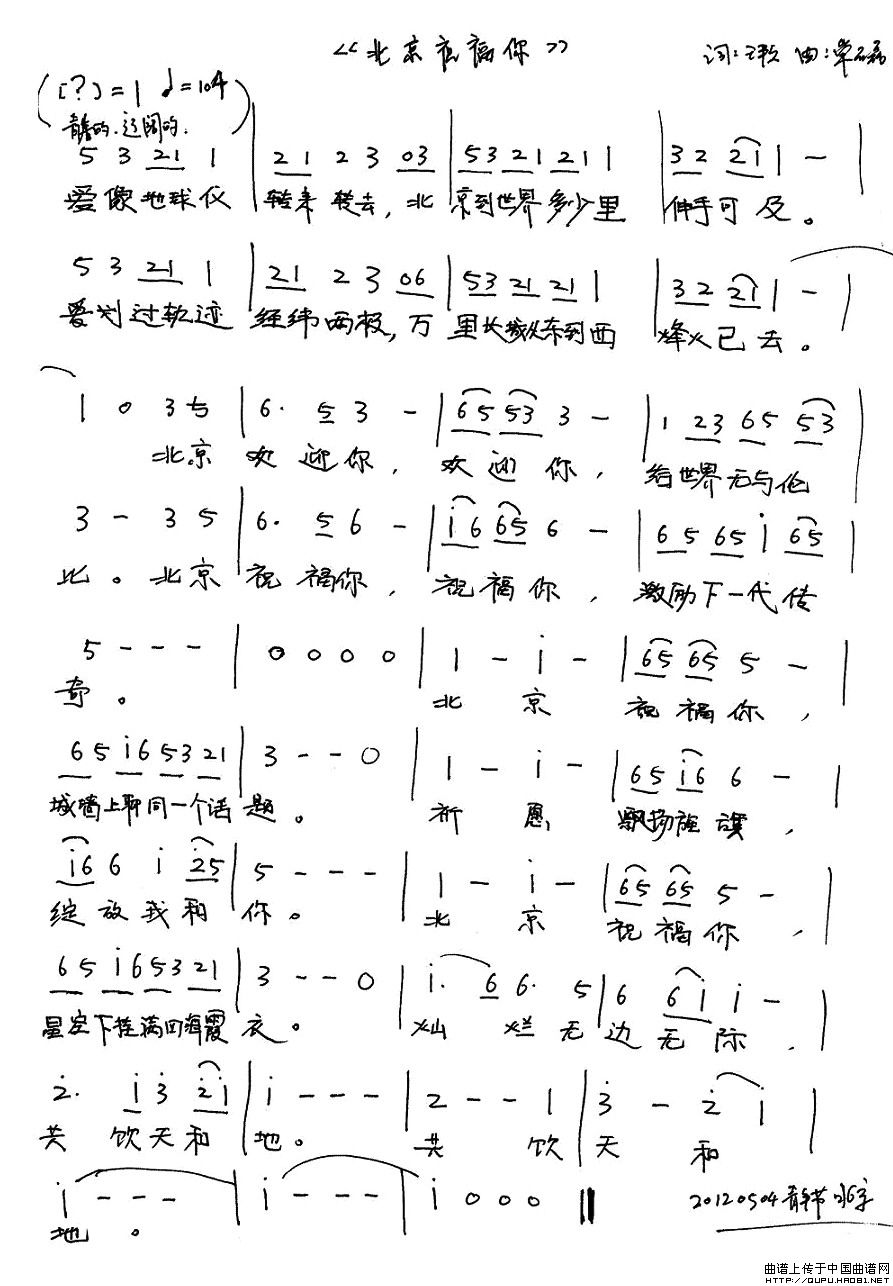 《北京祝福你》 词：王 曲：
(?)=1 ♩=104
的.辽阔的.
5 3 21 1 | 21 2 3 03 | 53 21 21 1 | 32 21 1 - |
爱像地球仪 转来转去，北京到世界多少里 伸手可及。
5 3 21 1 | 21 2 3 06 | 53 21 21 1 | 32 21 1 - |
爱划过轨迹 经纬两极，万里长城从东到西 烽火已去。
1 0 3 5 | 6· 5 3 - | 65 53 3 - | 1 23 65 53 |
北京欢迎你，欢迎你，给世界无与伦
3 - 3 5 | 6· 5 6 - | i6 65 6 - | 65 65 i 65 |
比。北京祝福你，祝福你，激励下一代传
5 - - - | 0 0 0 0 | 1 - i - | 65 65 5 - |
奇。 北京 祝福你，
65 i6 53 21 | 3 - - 0 | 1 - i - | 65 i6 6 - |
城墙上聊同一个话题。 祈愿 飘扬旌旗，
i6 6 i i25 | 5 - - - | 1 - i - | 65 65 5 - |
绽放我和你。 北京 祝福你，
65 i6 53 21 | 3 - - 0 | i· 6 6· 5 | 6 6i i - |
星空下挂满四海霞衣。 灿烂无边无际，
2· i 3 2i | i - - - | 2 - - 1 | 3 - 2 i |
共饮天和地。 共饮天和
i - - - | i - - - | i 0 0 0 ‖ 20120504青年节
地。
曲谱上传于中国曲谱网
HTTP://QUPU.HAO81.NET